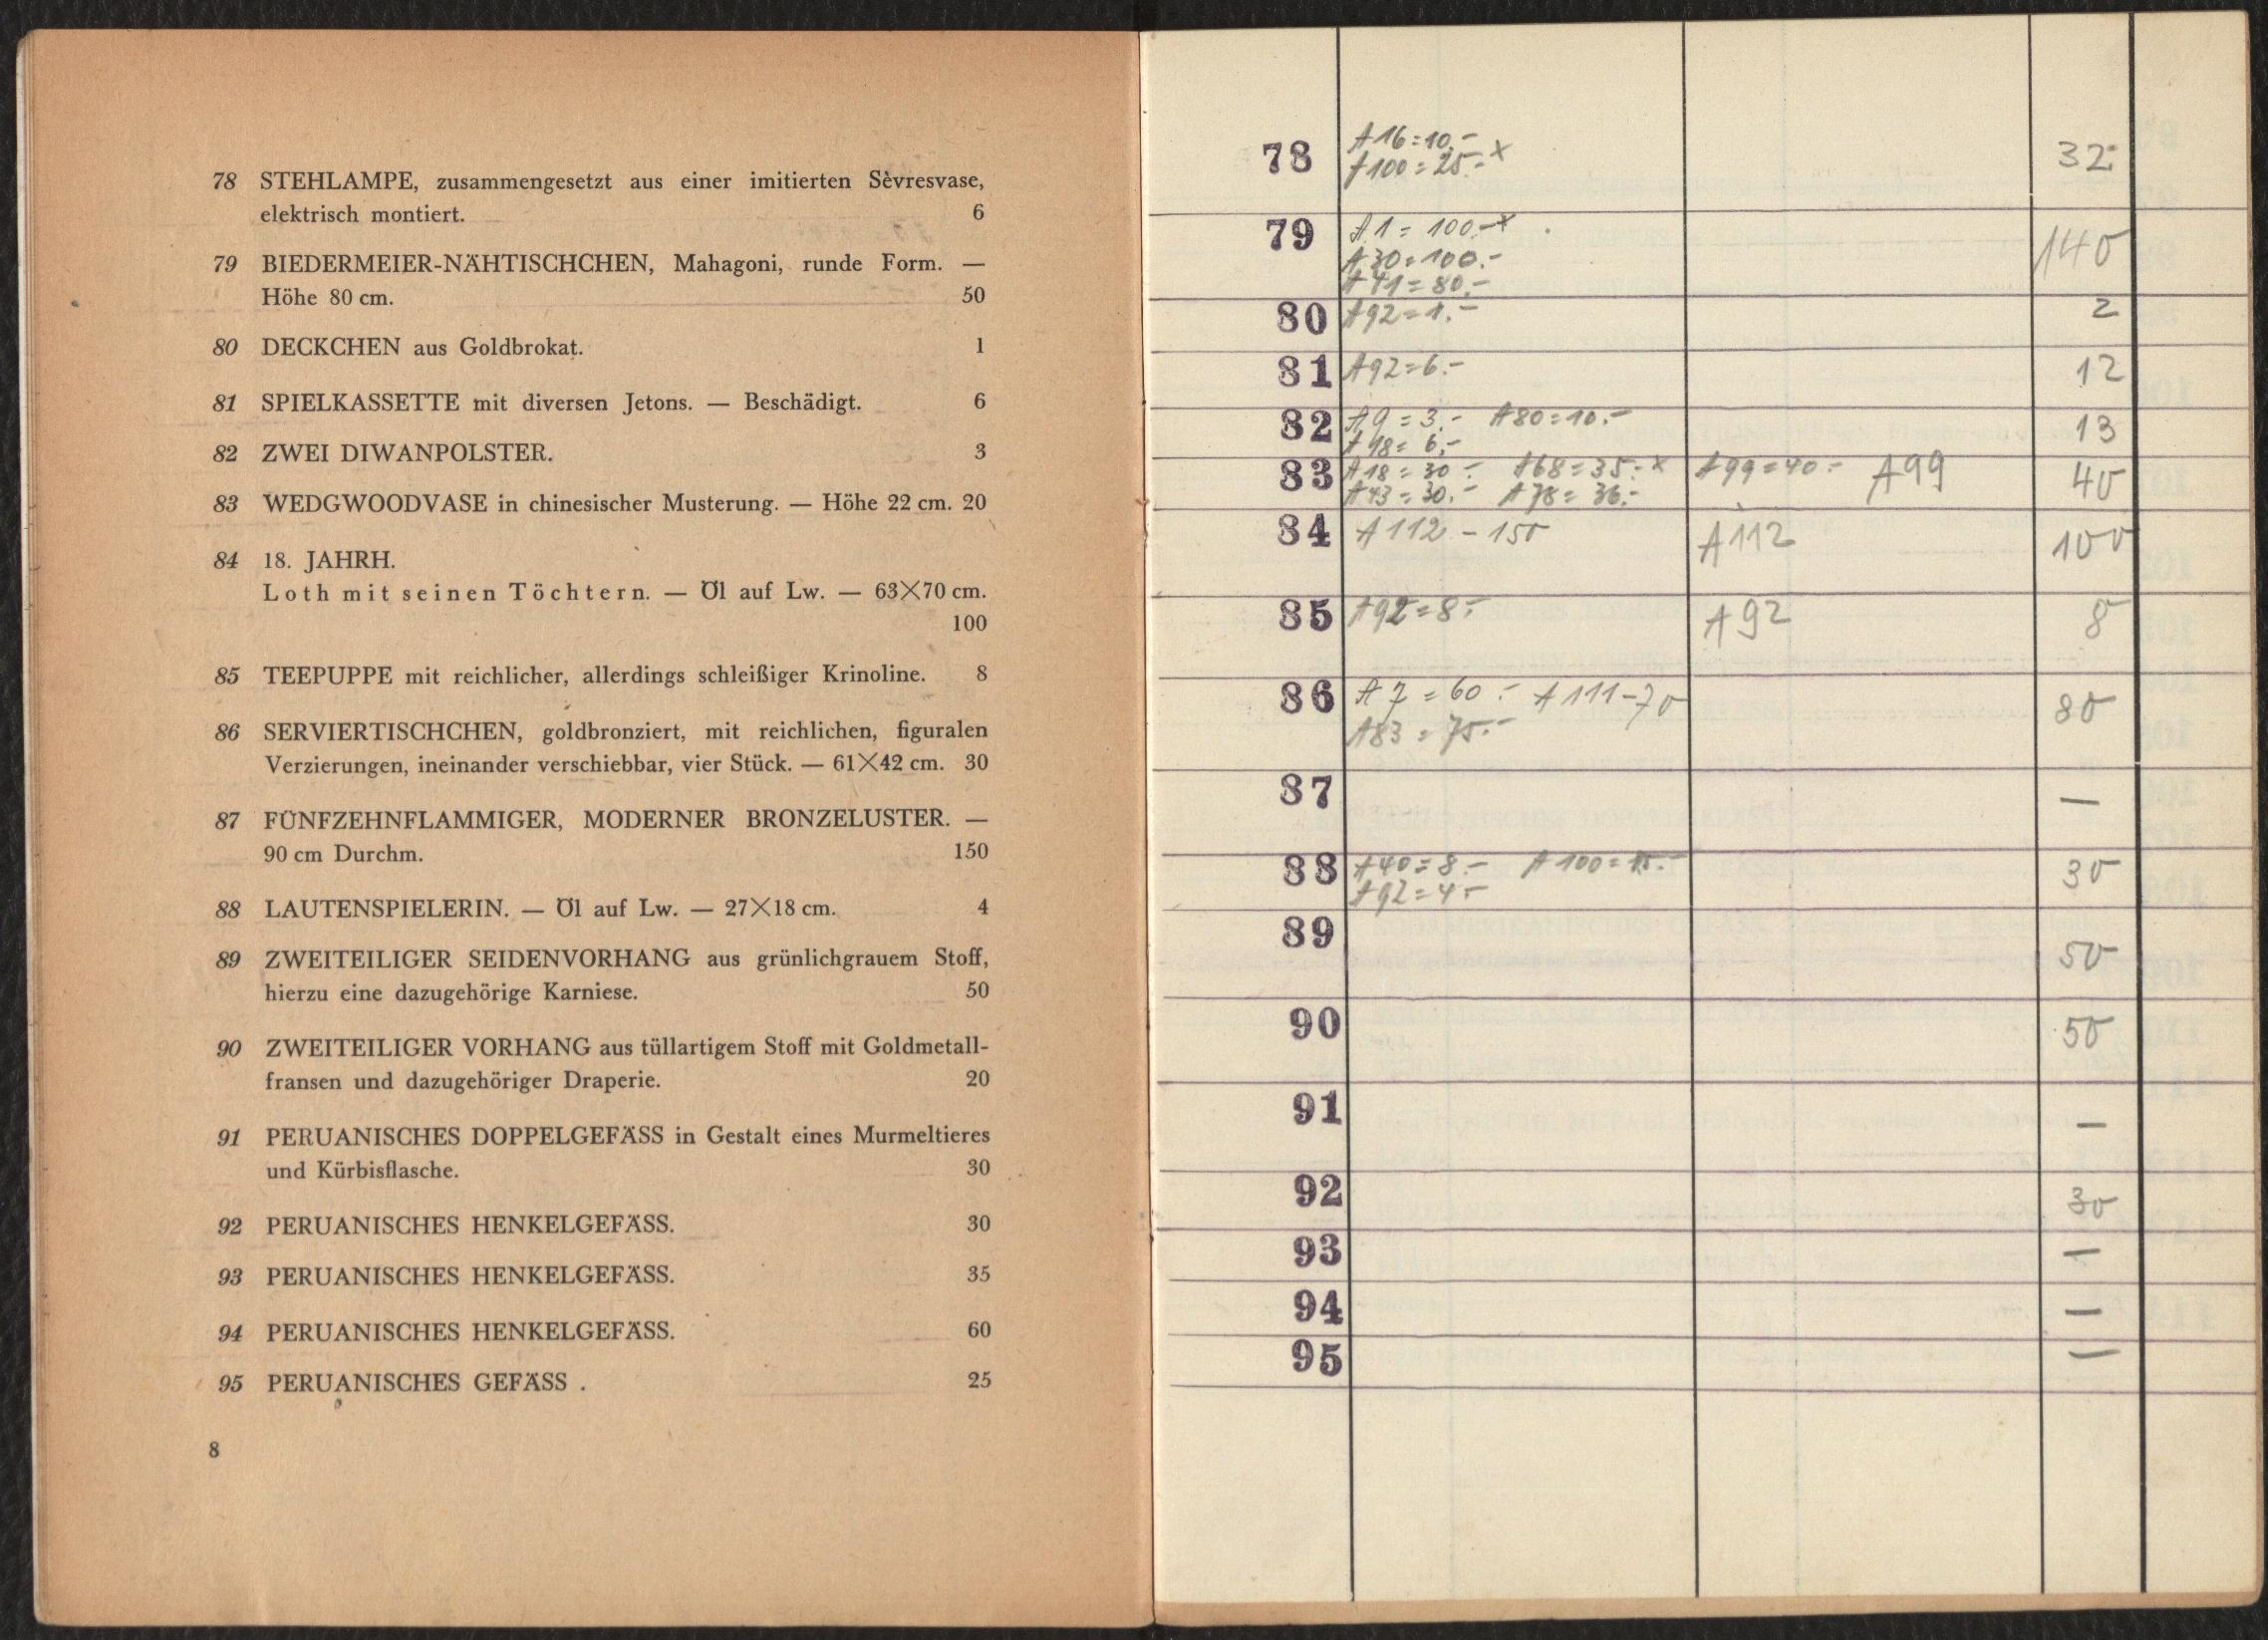 78 STEHLAMPE, zusammengesetzt aus einer imitierten Sèvresvase,
elektrisch montiert. 6
79 BIEDERMEIER-NÄHTISCHCHEN, Mahagoni, runde Form. —
Höhe 80 cm. 50
80 DECKCHEN aus Goldbrokat. 1
81 SPIELKASSETTE mit diversen Jetons. — Beschädigt. 6
82 ZWEI DIWANPOLSTER. 3
83 WEDGWOODVASE in chinesischer Musterung. — Höhe 22 cm. 20
84 18. JAHRH.
Loth mit seinen Töchtern. — Öl auf Lw. — 63×70 cm.
100
85 TEEPUPPE mit reichlicher, allerdings schleißiger Krinoline. 8
86 SERVIERTISCHCHEN, goldbronziert, mit reichlichen, figuralen
Verzierungen, ineinander verschiebbar, vier Stück. — 61×42 cm. 30
87 FÜNFZEHNFLAMMIGER, MODERNER BRONZELUSTER. —
90 cm Durchm. 150
88 LAUTENSPIELERIN. — Öl auf Lw. — 27×18 cm. 4
89 ZWEITEILIGER SEIDENVORHANG aus grünlichgrauem Stoff,
hierzu eine dazugehörige Karniese. 50
90 ZWEITEILIGER VORHANG aus tüllartigem Stoff mit Goldmetall-
fransen und dazugehöriger Draperie. 20
91 PERUANISCHES DOPPELGEFÄSS in Gestalt eines Murmeltieres
und Kürbisflasche. 30
92 PERUANISCHES HENKELGEFÄSS. 30
93 PERUANISCHES HENKELGEFÄSS. 35
94 PERUANISCHES HENKELGEFÄSS. 60
95 PERUANISCHES GEFÄSS . 25
8
A16=10.-
78 A100=25.-x 32.
79 A1=100.-x 140
A30=100.-
A41=80.-
80 A92=1.- 2
81 A92=6.- 12
82 A9=3.- A80=10.- 13
A98=6.-
83 A18=30.- A68=35.-x A99=40.- A99 40
A43=30.- A78=36.-
84 A112-150 A112 100
85 A92=8.- A92 8
86 A7=60.- A111-70 80
A83=75.-
87 —
88 A40=8.- A100=15.- 30
A92=4.-
89 50
90 50
91 —
92 30
93 —
94 —
95 —